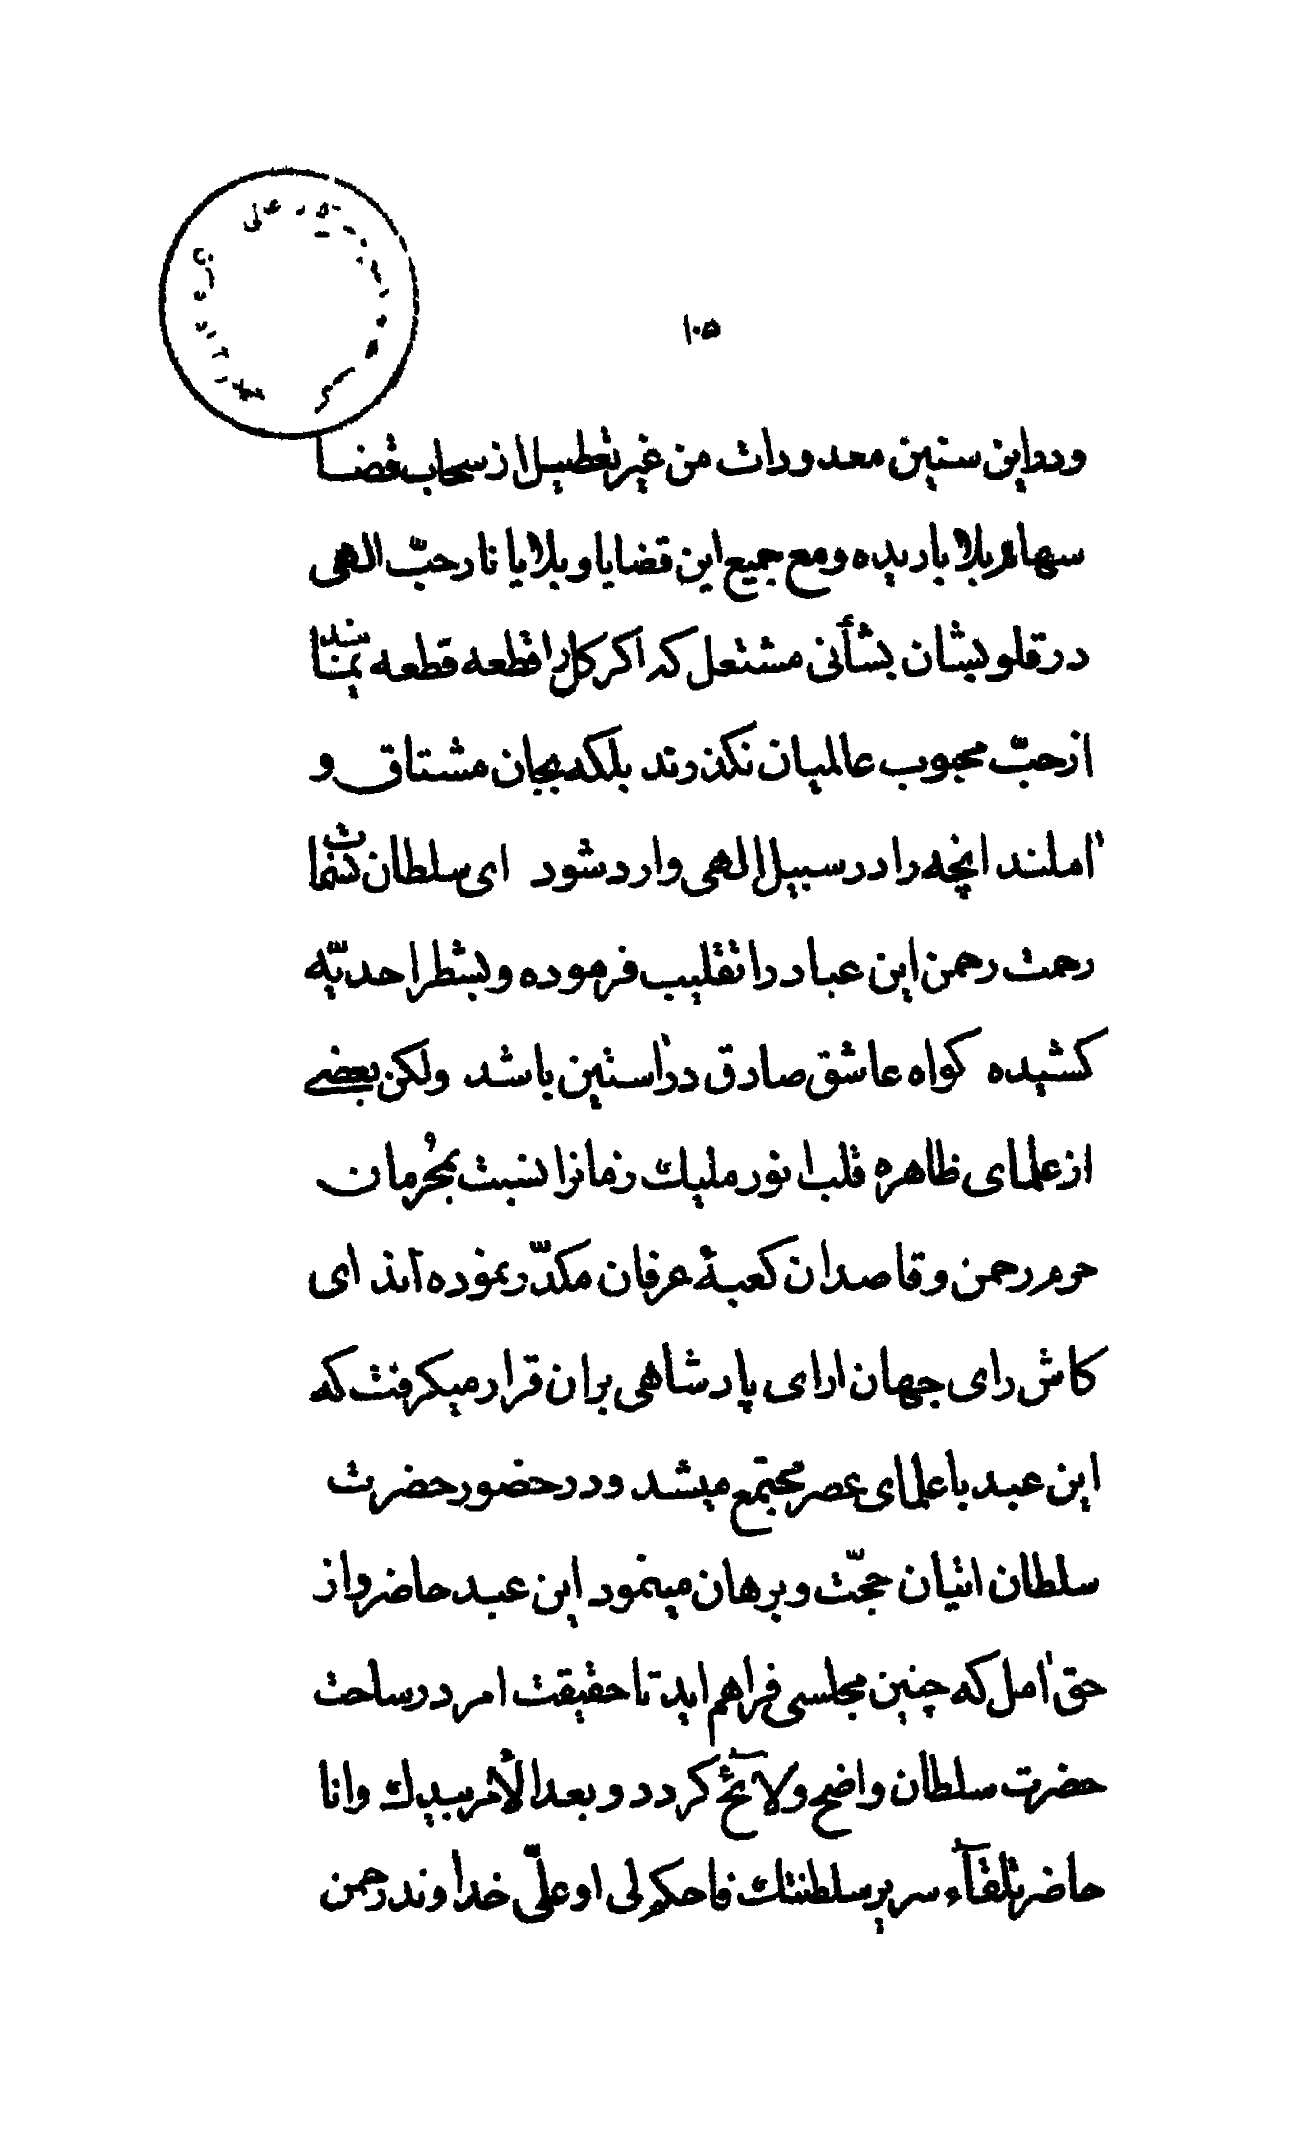 ۱۰۵
ودراین سنین معدودات من غیر تعطیل از سحاب قضا
سهام بلا باریده ومع جمیع این قضایا و بلایا نار حبّ الهی
در قلوبشان بشأنی مشتعل که اکر کل را قطعه قطعه نمایند
از حبّ محبوب عالمیان نکذرند بلکه بجان مشتاق و
آملند انچه را در سبیل الهی وارد شود ای سلطان نسمات
رحمت رحمن این عباد را تقلیب فرموده وبشطر احدیّه
کشیده کواه عاشق صادق در آستین باشد ولکن بعضی
از علمای ظاهره قلب انور ملیك زمانرا نسبت بمُحرمان
حرم رحمن و قاصدان کعبهٔ عرفان مکدّر نموده‌اند ای
کاش رای جهان ارای پادشاهی بران قرار میکرفت که
این عبد با علمای عصر مجتمع میشد ودر حضور حضرت
سلطان اتیان حجّت وبرهان مینمود این عبد حاضر واز
حق آمل که چنین مجلسی فراهم اید تا حقیقت امر در ساحت
حضرت سلطان واضح ولآئح کردد وبعد الأمر بیدك وانا
حاضر تلقآء سریر سلطنتك فاحکم لی او علیّ خداوند رحمن